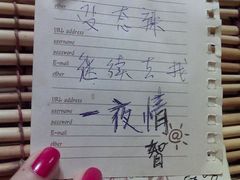 没态辣
URL address
username
password
E-mail
other
继续去找
URL address
username
password
E-mail
other
一夜情
智